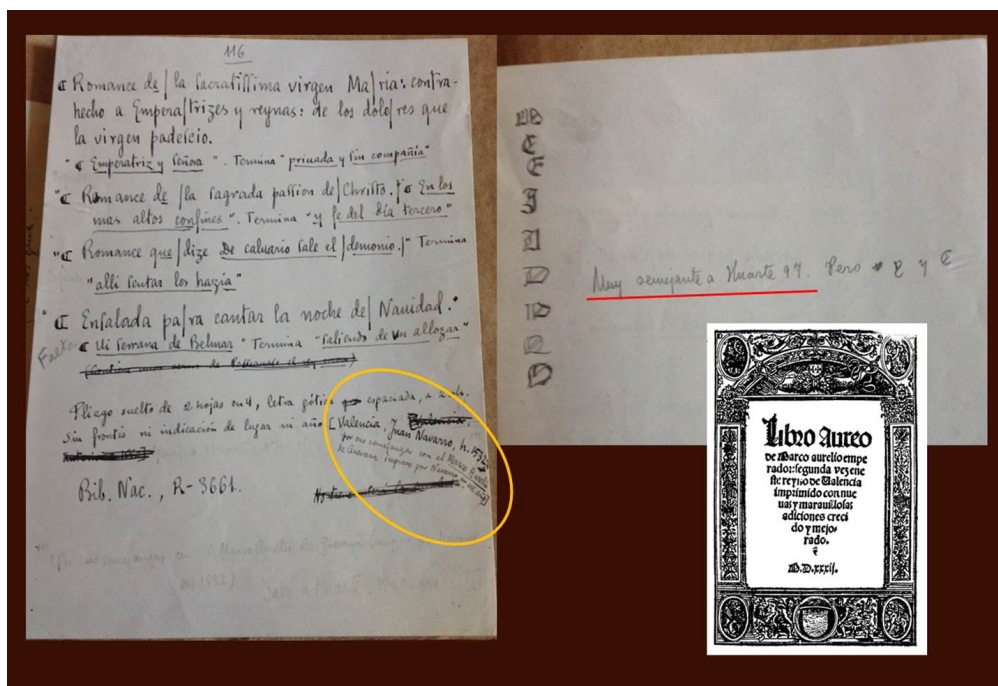 116
¶ Romance de | la sacratissima virgen Ma|ria: contra-
hecho a Empera|trizes y reynas: de los dolo|res que
la virgen padescio.
" ¶ Emperatriz y señora ". Termina "privada y sin compañia"
"¶ Romance de |la sagrada passion de| Christo.|" ¶ En los
mas altos confines ". Termina "y fe del dia tercero"
"¶ Romance que| dize De caluario sale el |demonio.|" Termina
"alli sentar los hazia"
"¶ Ensalada pa|ra cantar la noche de| Nauidad."
¶ Ui serrana de Belmar " Termina "saliendo de un allozar"
Pliego suelto de 2 hojas en 4, letra gótica espaciada, a 2 cols.
Sin frontis ni indicación de lugar ni año [Valencia, Juan Navarro, h. 1532
por sus semejanzas con el Marco Aurelio
de Guevara impreso por Navarro
Bib. Nac., R-3661.
Muy semejante a Huarte 97. Pero
Libro Aureo
de Marco aurelio empe
rador: segunda vez en e
ste reyno de Valencia
imprimido con nue
uas y marauillosas
adiciones creci
do y mejo-
rado.
M.D.xxxij.